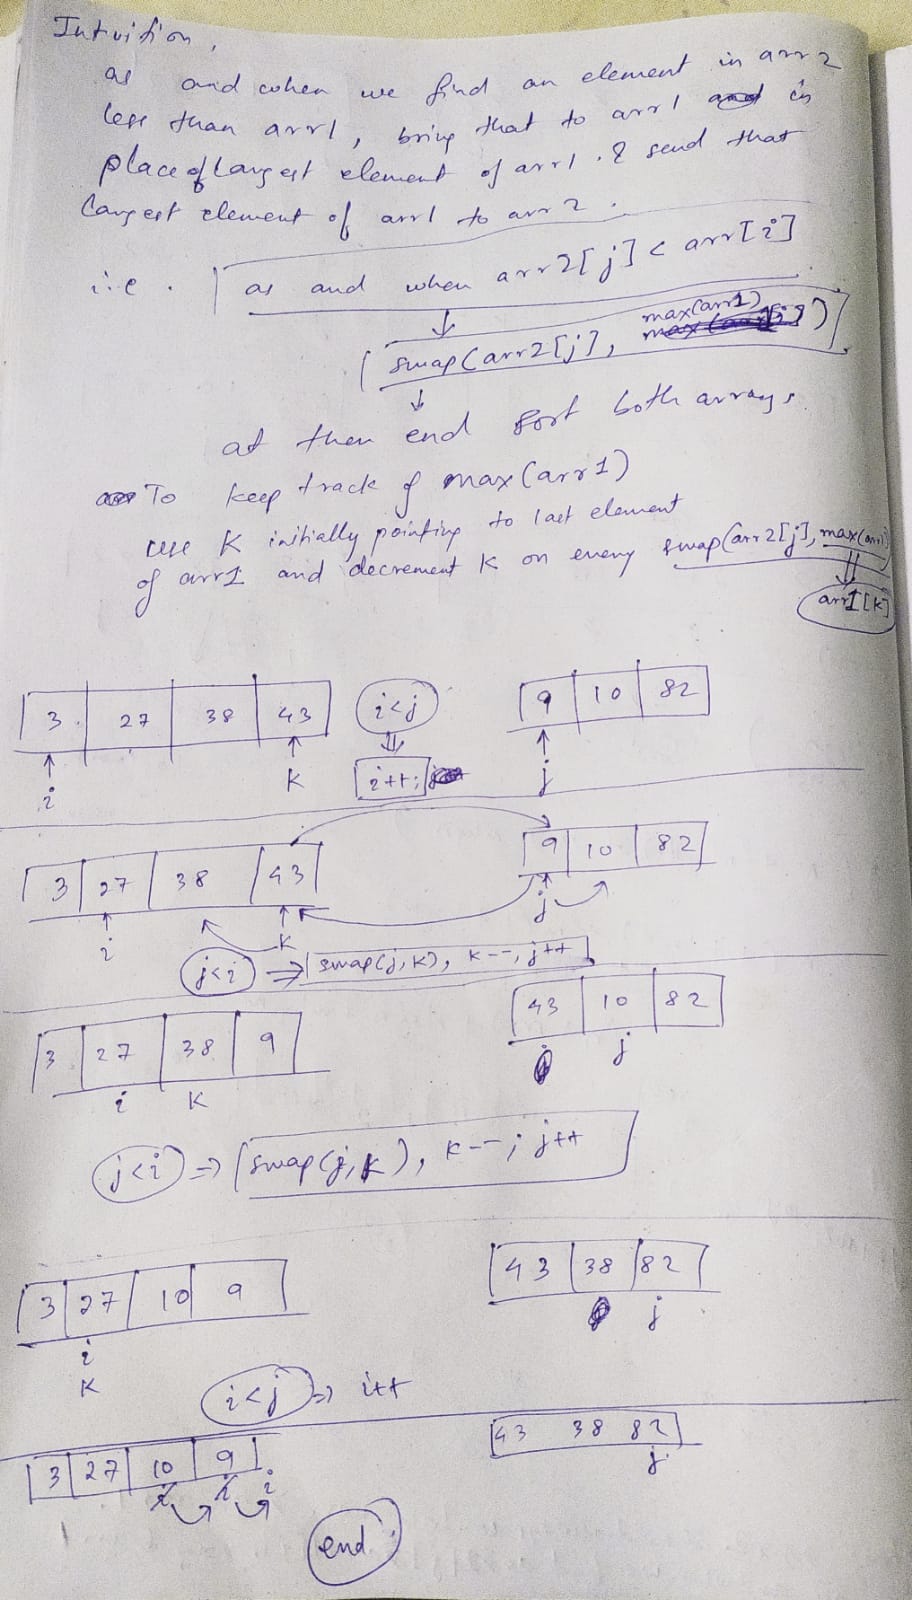 Intuition,
as and when we find an element in arr2
less than arr1, bring that to arr1 in
place of Largest element of arr1. & send that
largest element of arr1 to arr2.
i.e. as and when arr2[j] < arr[i]
↓
swap(arr2[j], max(arr1))
↓
at then end sort both arrays.
To keep track of max(arr1)
use K initially pointing to last element
of arr1 and decrement K on every swap(arr2[j], max(arr1)
⇓
arr1[K]
3 27 38 43 i<j 9 10 82
↑ ↑ ⇓ ↑
i K i++; j
3 27 38 43 9 10 82
↑ ↑ ↑
i K j
j<i ⇒ swap(j,K), K--, j++
3 27 38 9 43 10 82
i K j
j<i ⇒ swap(j,K), K--; j++
3 27 10 9 43 38 82
i j
K
i<j ⇒ i++
3 27 10 9 i 43 38 82
i i j
end